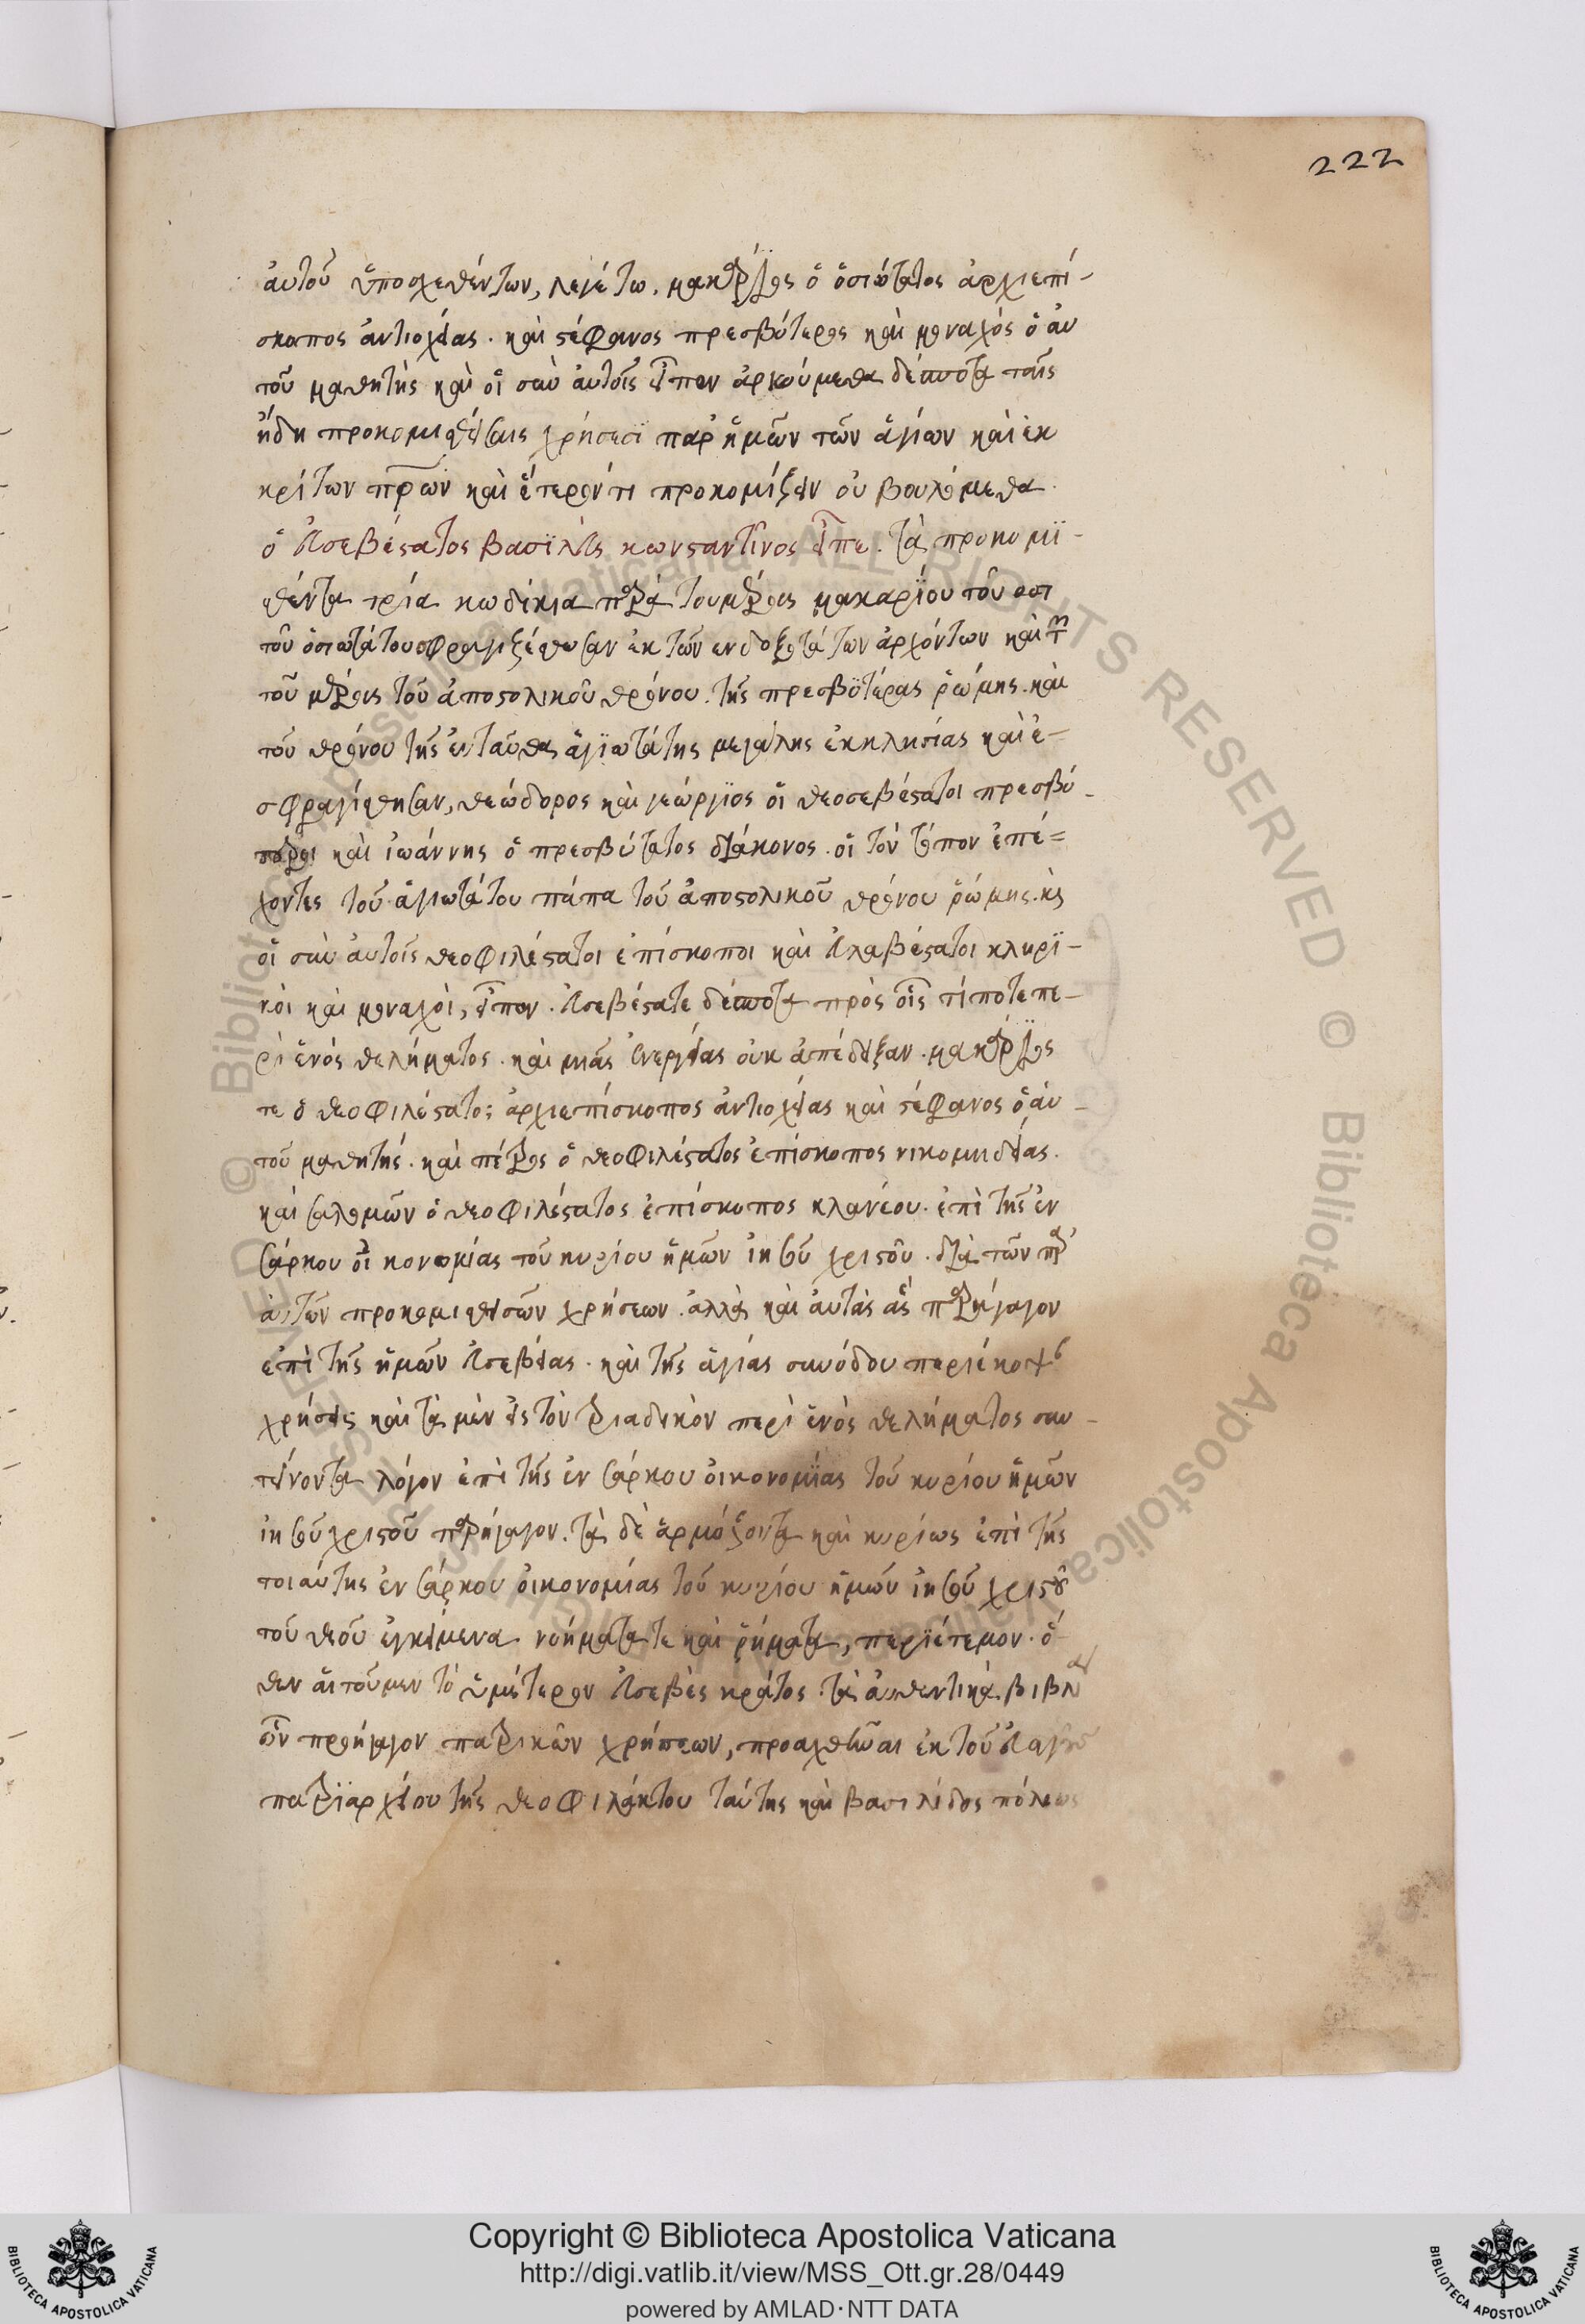 222
αὐτοῦ ὑποσχεθέντων, λεγέτω. μακάριος ὁ ὁσιώτατος ἀρχιεπί-
σκοπος ἀντιοχείας. καὶ στέφανος πρεσβύτερος καὶ μοναχὸς ὁ αὐ
τοῦ μαθητὴς καὶ οἱ σὺν αὐτοῖς εἶπον ἀρκούμεθα δέσποτα ταῖς
ἤδη προκομισθείσαις χρήσεσϊ παρ ἡμῶν τῶν ἁγίων καὶ ἐκ
κρίτων πρων καὶ ἕτερόν τι προκομίζειν οὐ βουλόμεθα.
ὁ εὐσεβέστατος βασϊλεὺς κωνσταντῖνος εἶπε. τὰ προκομϊ-
σθέντα τρία κωδίκια παρὰ τοῦ μέρους μακαρίου τοῦ
τοῦ ὁσιωτάτου σφραγιζέσθωσαν ἐκ τῶν ενδοξοτάτων ἀρχόντων καὶ
τοῦ μέρους τοῦ ἀποστολικοῦ θρόνου. τῆς πρεσβϋτέρας ῥώμης. καὶ
τοῦ θρόνου τῆς ἐνταῦθα ἁγϊωτάτης μεγάλης ἐκκλησίας καὶ ἐ-
σφραγίσθησαν, θεώδορος καὶ γεώργϊος οἱ θεοσεβέστατοι πρεσβύ-
τεροι καὶ ἰωάννης ὁ πρεσβύτατος διάκονος. οἱ τὸν τόπον ἐπέ=
χοντες τοῦ ἁγιωτάτου πάπα τοῦ ἀποστολικοῦ θρόνου ῥώμης. κὶ
οἱ σὺν αὐτοῖς θεοφιλέστατοι ἐπίσκοποι καὶ εὐλαβέστατοι κληρϊ-
κοὶ καὶ μοναχοὶ, εἶπον. εὐσεβέστατε δέσποτα πρὸς οἷς τίποτε πε-
ρὶ ἑνὸς θελήματος. καὶ μιᾶς ἐνεργείας οὐκ ἀπέδειξαν. μακάριος
τε ὁ θεοφιλέστατος ἀρχιεπίσκοπος ἀντιοχείας καὶ στέφανος ὁ αὐ-
τοῦ μαθητής. καὶ πέτρος ὁ θεοφιλέστατος ἐπίσκοπος νικομηδείας.
καὶ σαλομῶν ὁ θεοφιλέστατος ἐπίσκοπος κλανέου. ἐπὶ τῆς ἐν
σάρκου οἰκονομίας τοῦ κυρίου ἡμῶν ἰησοῦ χριστοῦ. διὰ τῶν παρ
αὐτῶν προκομισθεισῶν χρήσεων. ἀλλὰ καὶ αὐτὰς ἃς παρήγαγον
ἐπὶ τῆς ἡμῶν εὐσεβείας. καὶ τῆς ἁγίας συνόδου περιέκοψ
χρήσεις καὶ τὰ μὲν εἰς τὸν τριαδικὸν περὶ ἑνὸς θελήματος συν-
τείνοντα λόγον ἐπὶ τῆς ἐν σάρκου οἰκονομϊας τοῦ κυρίου ἡμῶν
ἰησοῦ χριστοῦ παρήγαγον. τὰ δὲ ἁρμόζοντα καὶ κυρίως ἐπὶ τῆς
τοιαύτης ἐν σάρκου οἰκονομίας τοῦ κυρίου ἡμῶν ἰησοῦ χριστοῦ
τοῦ θεοῦ ἐγκείμενα νοήματα τε καὶ ῥήματα, περϊέτεμον. ὅ-
θεν αἰτοῦμεν τὸ ὑμέτερον εὐσεβὲς κράτος. τὰ αὐθεντικὰ βιβλ
ὧν προήγαγον πατρικῶν χρήσεων, προαχθῆναι ἐκ τοῦ εὐαγοῦς
πατρϊαρχείου τῆς θεοφιλάκτου ταύτης καὶ βασιλίδος πόλεως
Copyright © Biblioteca Apostolica Vaticana
http://digi.vatlib.it/view/MSS_Ott.gr.28/0449
powered by AMLAD·NTT DATA